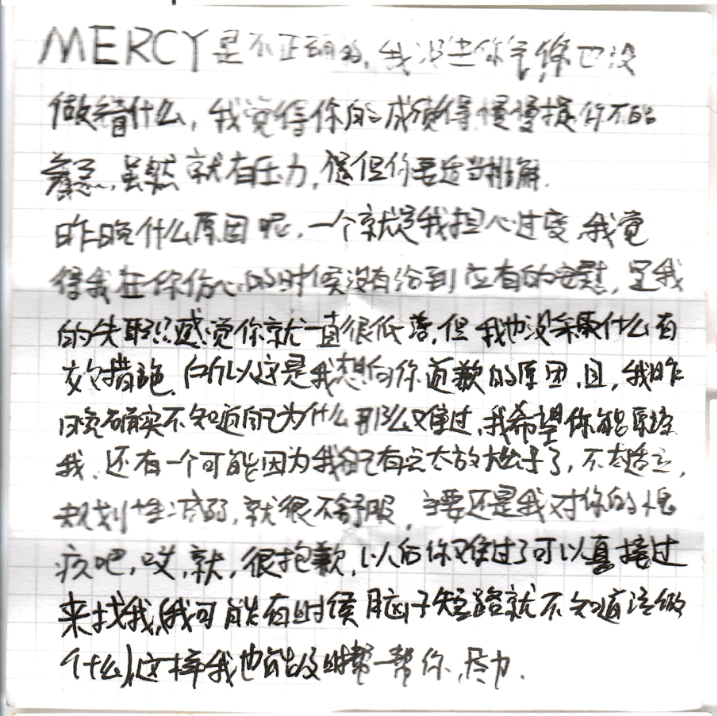 MERCY是不正确的,我没生你气,你也没
做错什么,我觉得你的成绩得慢慢提你不能
着急,虽然就有压力,但你要适当排解.
昨晚什么原因呢,一个就是我担心过度,我觉
得我在你伤心的时候没有给到应有的安慰,是我
的失职,感觉你就一直很低落,但我也没采取什么有
效措施.所以这是我想向你道歉的原因,且,我昨
晚确实不知道自己为什么那么难过,我希望你能原谅
我.还有一个可能因为我自己有点太放松了,不太适应,
规划性减弱,就很不舒服,主要还是我对你的愧
疚吧,哎,就,很抱歉,以后你难过了可以直接过
来找我,(我可能有时候脑子短路就不知道该做
什么)这样我也能及时帮一帮你,尽力.